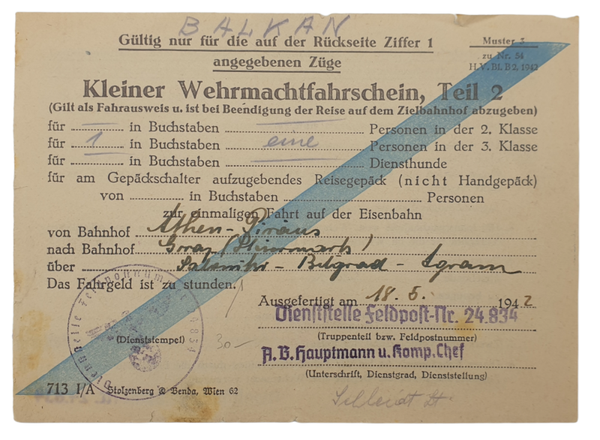 BALKAN
Gültig nur für die auf der Rückseite Ziffer 1
angegebenen Züge
Muster 5
zu Nr. 54
H.V.Bl.B 2. 1942
Kleiner Wehrmachtfahrschein, Teil 2
(Gilt als Fahrausweis u. ist bei Beendigung der Reise auf dem Zielbahnhof abzugeben)
für — in Buchstaben — Personen in der 2. Klasse
für 1 in Buchstaben eine Personen in der 3. Klasse
für — in Buchstaben — Diensthunde
für am Gepäckschalter aufzugebendes Reisegepäck (nicht Handgepäck)
von — in Buchstaben — Personen
zur einmaligen Fahrt auf der Eisenbahn
von Bahnhof Athen-Piräus
nach Bahnhof Graz (Steiermark)
über Saloniki - Belgrad - Agram
Das Fahrgeld ist zu stunden.
Ausgefertigt am 18. 5. 1942
Dienststelle Feldpostnummer 24834
Dienststelle Feldpost-Nr. 24.834
(Dienststempel)
30-
(Truppenteil bzw. Feldpostnummer)
A.B. Hauptmann u. Komp. Chef
(Unterschrift, Dienstgrad, Dienststellung)
713 I/A Stolzenberg & Benda, Wien 62